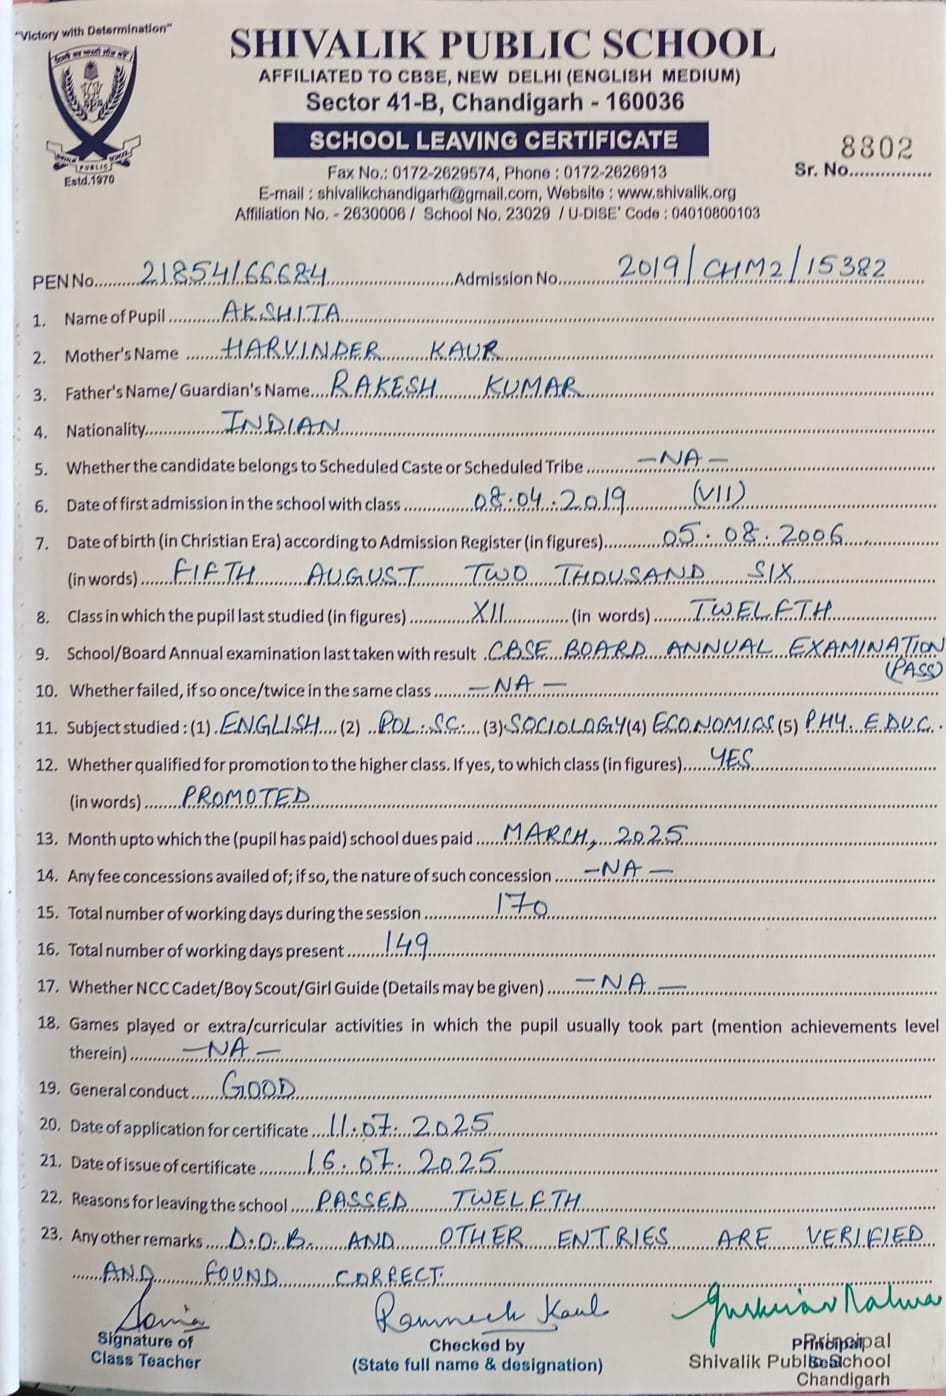 "Victory with Determination"
SHIVALIK PUBLIC SCHOOL
AFFILIATED TO CBSE, NEW DELHI (ENGLISH MEDIUM)
Sector 41-B, Chandigarh - 160036
SCHOOL LEAVING CERTIFICATE
PUBLIC
Estd.1970
8802
Sr. No................
Fax No.: 0172-2629574, Phone : 0172-2626913
E-mail : shivalikchandigarh@gmail.com, Website : www.shivalik.org
Affiliation No. - 2630006 / School No. 23029 / U-DISE' Code : 04010800103
PEN No. 21854166684 Admission No. 2019/CHM2/15382
1. Name of Pupil AKSHITA
2. Mother's Name HARVINDER KAUR
3. Father's Name/ Guardian's Name RAKESH KUMAR
4. Nationality INDIAN
5. Whether the candidate belongs to Scheduled Caste or Scheduled Tribe -NA-
6. Date of first admission in the school with class 08.04.2019 (VII)
7. Date of birth (in Christian Era) according to Admission Register (in figures) 05.08.2006
(in words) FIFTH AUGUST TWO THOUSAND SIX
8. Class in which the pupil last studied (in figures) XII (in words) TWELFTH
9. School/Board Annual examination last taken with result CBSE BOARD ANNUAL EXAMINATION
(PASS)
10. Whether failed, if so once/twice in the same class -NA-
11. Subject studied : (1) ENGLISH (2) POL. SC. (3) SOCIOLOGY (4) ECONOMICS (5) PHY. EDUC.
12. Whether qualified for promotion to the higher class. If yes, to which class (in figures) YES
(in words) PROMOTED
13. Month upto which the (pupil has paid) school dues paid MARCH, 2025
14. Any fee concessions availed of; if so, the nature of such concession -NA-
15. Total number of working days during the session 170
16. Total number of working days present 149
17. Whether NCC Cadet/Boy Scout/Girl Guide (Details may be given) -NA-
18. Games played or extra/curricular activities in which the pupil usually took part (mention achievements level
therein) -NA-
19. General conduct GOOD
20. Date of application for certificate 11.07.2025
21. Date of issue of certificate 16.07.2025
22. Reasons for leaving the school PASSED TWELFTH
23. Any other remarks D.O.B. AND OTHER ENTRIES ARE VERIFIED
AND FOUND CORRECT.
Sonia
Signature of
Class Teacher
Kaul
Checked by
(State full name & designation)
Principal
Seal
Principal
Shivalik Public School
Chandigarh